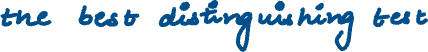 the best distinguishing test